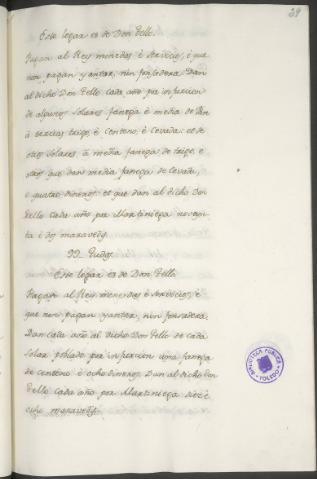 29
Este logar es de Don Tello.
Pagan al Rey monedas é servicios, é que
non pagan yantar, nin fonsadera. Dan
al dicho Don Tello cada año por infurcion
de algunos solares fanega é media de Pan
á tercias trigo, é centeno, é cevada: et de
otros solares á media fanega de trigo, e
otros que dan media fanega de cevada,
e quatro dineros. et que dan al dicho Don
Tello cada año por Martiniega noven-
ta é dos maravedis.
Este logar es de Don Tello
Pagan al Rey monedas é servicios, é
que non pagan yantar, nin fonsadera.
Dan cada año al dicho Don Tello de cada
solar poblado por infurcion una fanega
de centeno é ocho dineros. Dan al dicho Don
Tello cada año por Martiniega diez é
ocho maravedis.
BIBLIOTECA PUBLICA
TOLEDO